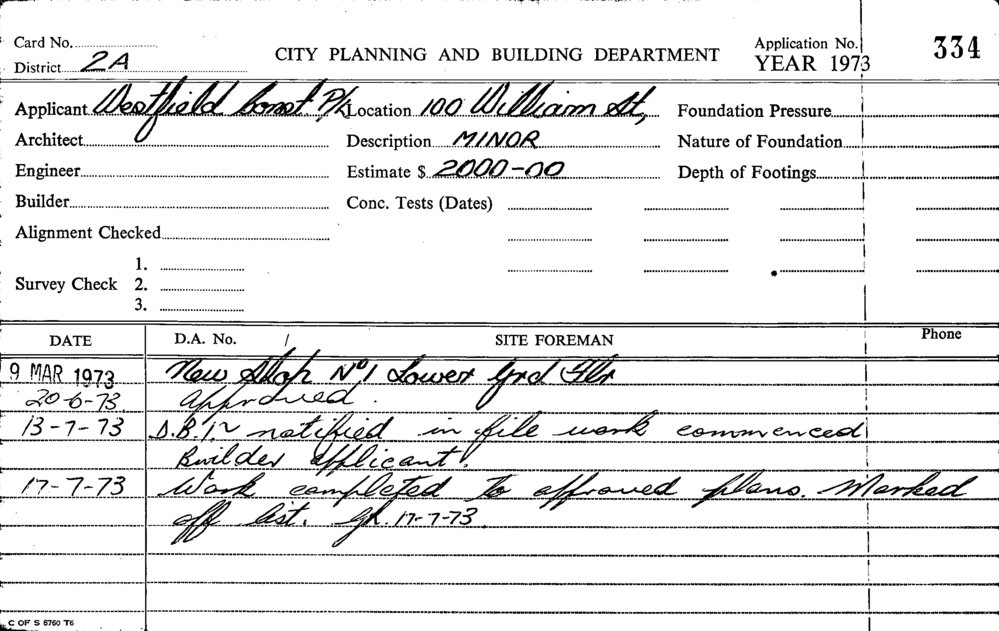 Card No.
CITY PLANNING AND BUILDING DEPARTMENT
Application No. 334
District 2A
YEAR 1973
Applicant Westfield Const. P/L Location 100 William St, Foundation Pressure
Architect Description MINOR Nature of Foundation
Engineer Estimate $ 2000-00 Depth of Footings
Builder Conc. Tests (Dates)
Alignment Checked
1.
Survey Check 2.
3.
DATE D.A. No. / SITE FOREMAN Phone
9 MAR 1973 New Shop No 1 Lower Grd Flr
20-6-73 Approved.
13-7-73 notified in file work commenced
Builder applicant.
17-7-73 Work completed to approved plans. Marked
off list. 17-7-73
C OF S 6760 T6